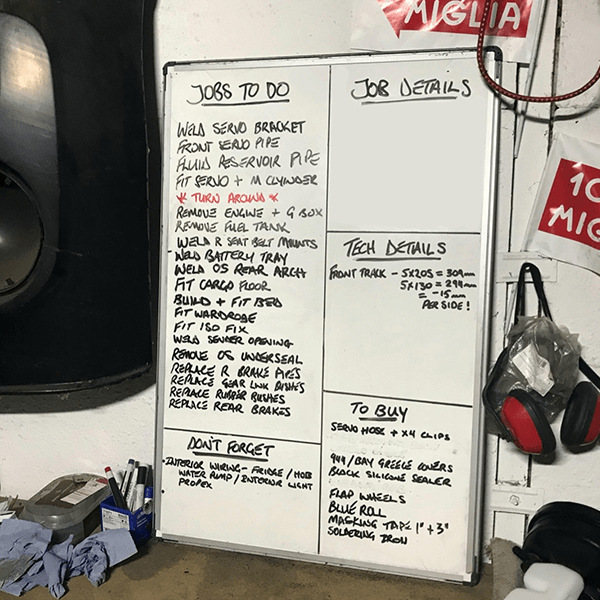 MIGLIA
JOBS TO DO
WELD SERVO BRACKET
FRONT SERVO PIPE
FLUID RESERVOIR PIPE
FIT SERVO + M CLYINDER
* TURN AROUND *
REMOVE ENGINE + G BOX
REMOVE FUEL TANK
WELD R SEAT BELT MOUNTS
WELD BATTERY TRAY
WELD OS REAR ARCH
FIT CARGO FLOOR
BUILD + FIT BED
FIT WARDROBE
FIT ISO FIX
WELD SENDER OPENING
REMOVE OS UNDERSEAL
REPLACE R BRAKE PIPES
REPLACE GEAR LINK BUSHES
REPLACE RUBBER BUSHES
REPLACE REAR BRAKES
DON'T FORGET
INTERIOR WIRING - FRIDGE / HOB
WATER PUMP / INTERIOR LIGHT
PROPEX
JOB DETAILS
TECH DETAILS
FRONT TRACK - 5X205 = 309mm
5X130 = 294mm
= -15mm
PER SIDE!
TO BUY
SERVO HOSE + X4 CLIPS
944 / BAY GREECE COVERS
BLACK SILICONE SEALER
FLAP WHEELS
BLUE ROLL
MASKING TAPE 1" + 3"
SOLDERING IRON
10
MIG